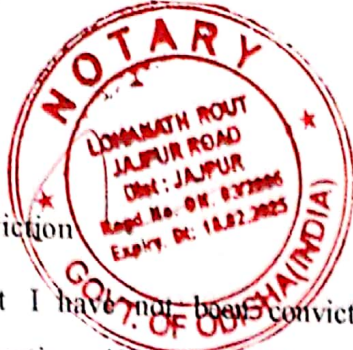 NOTARY
LOMANATH ROUT
JAJPUR ROAD
Dist: JAJPUR
Regd. No. ON. 03/2006
Expiry. Dt: 18.02.2025
GOVT. OF ODISHA (INDIA)
iction
t I have not been convict